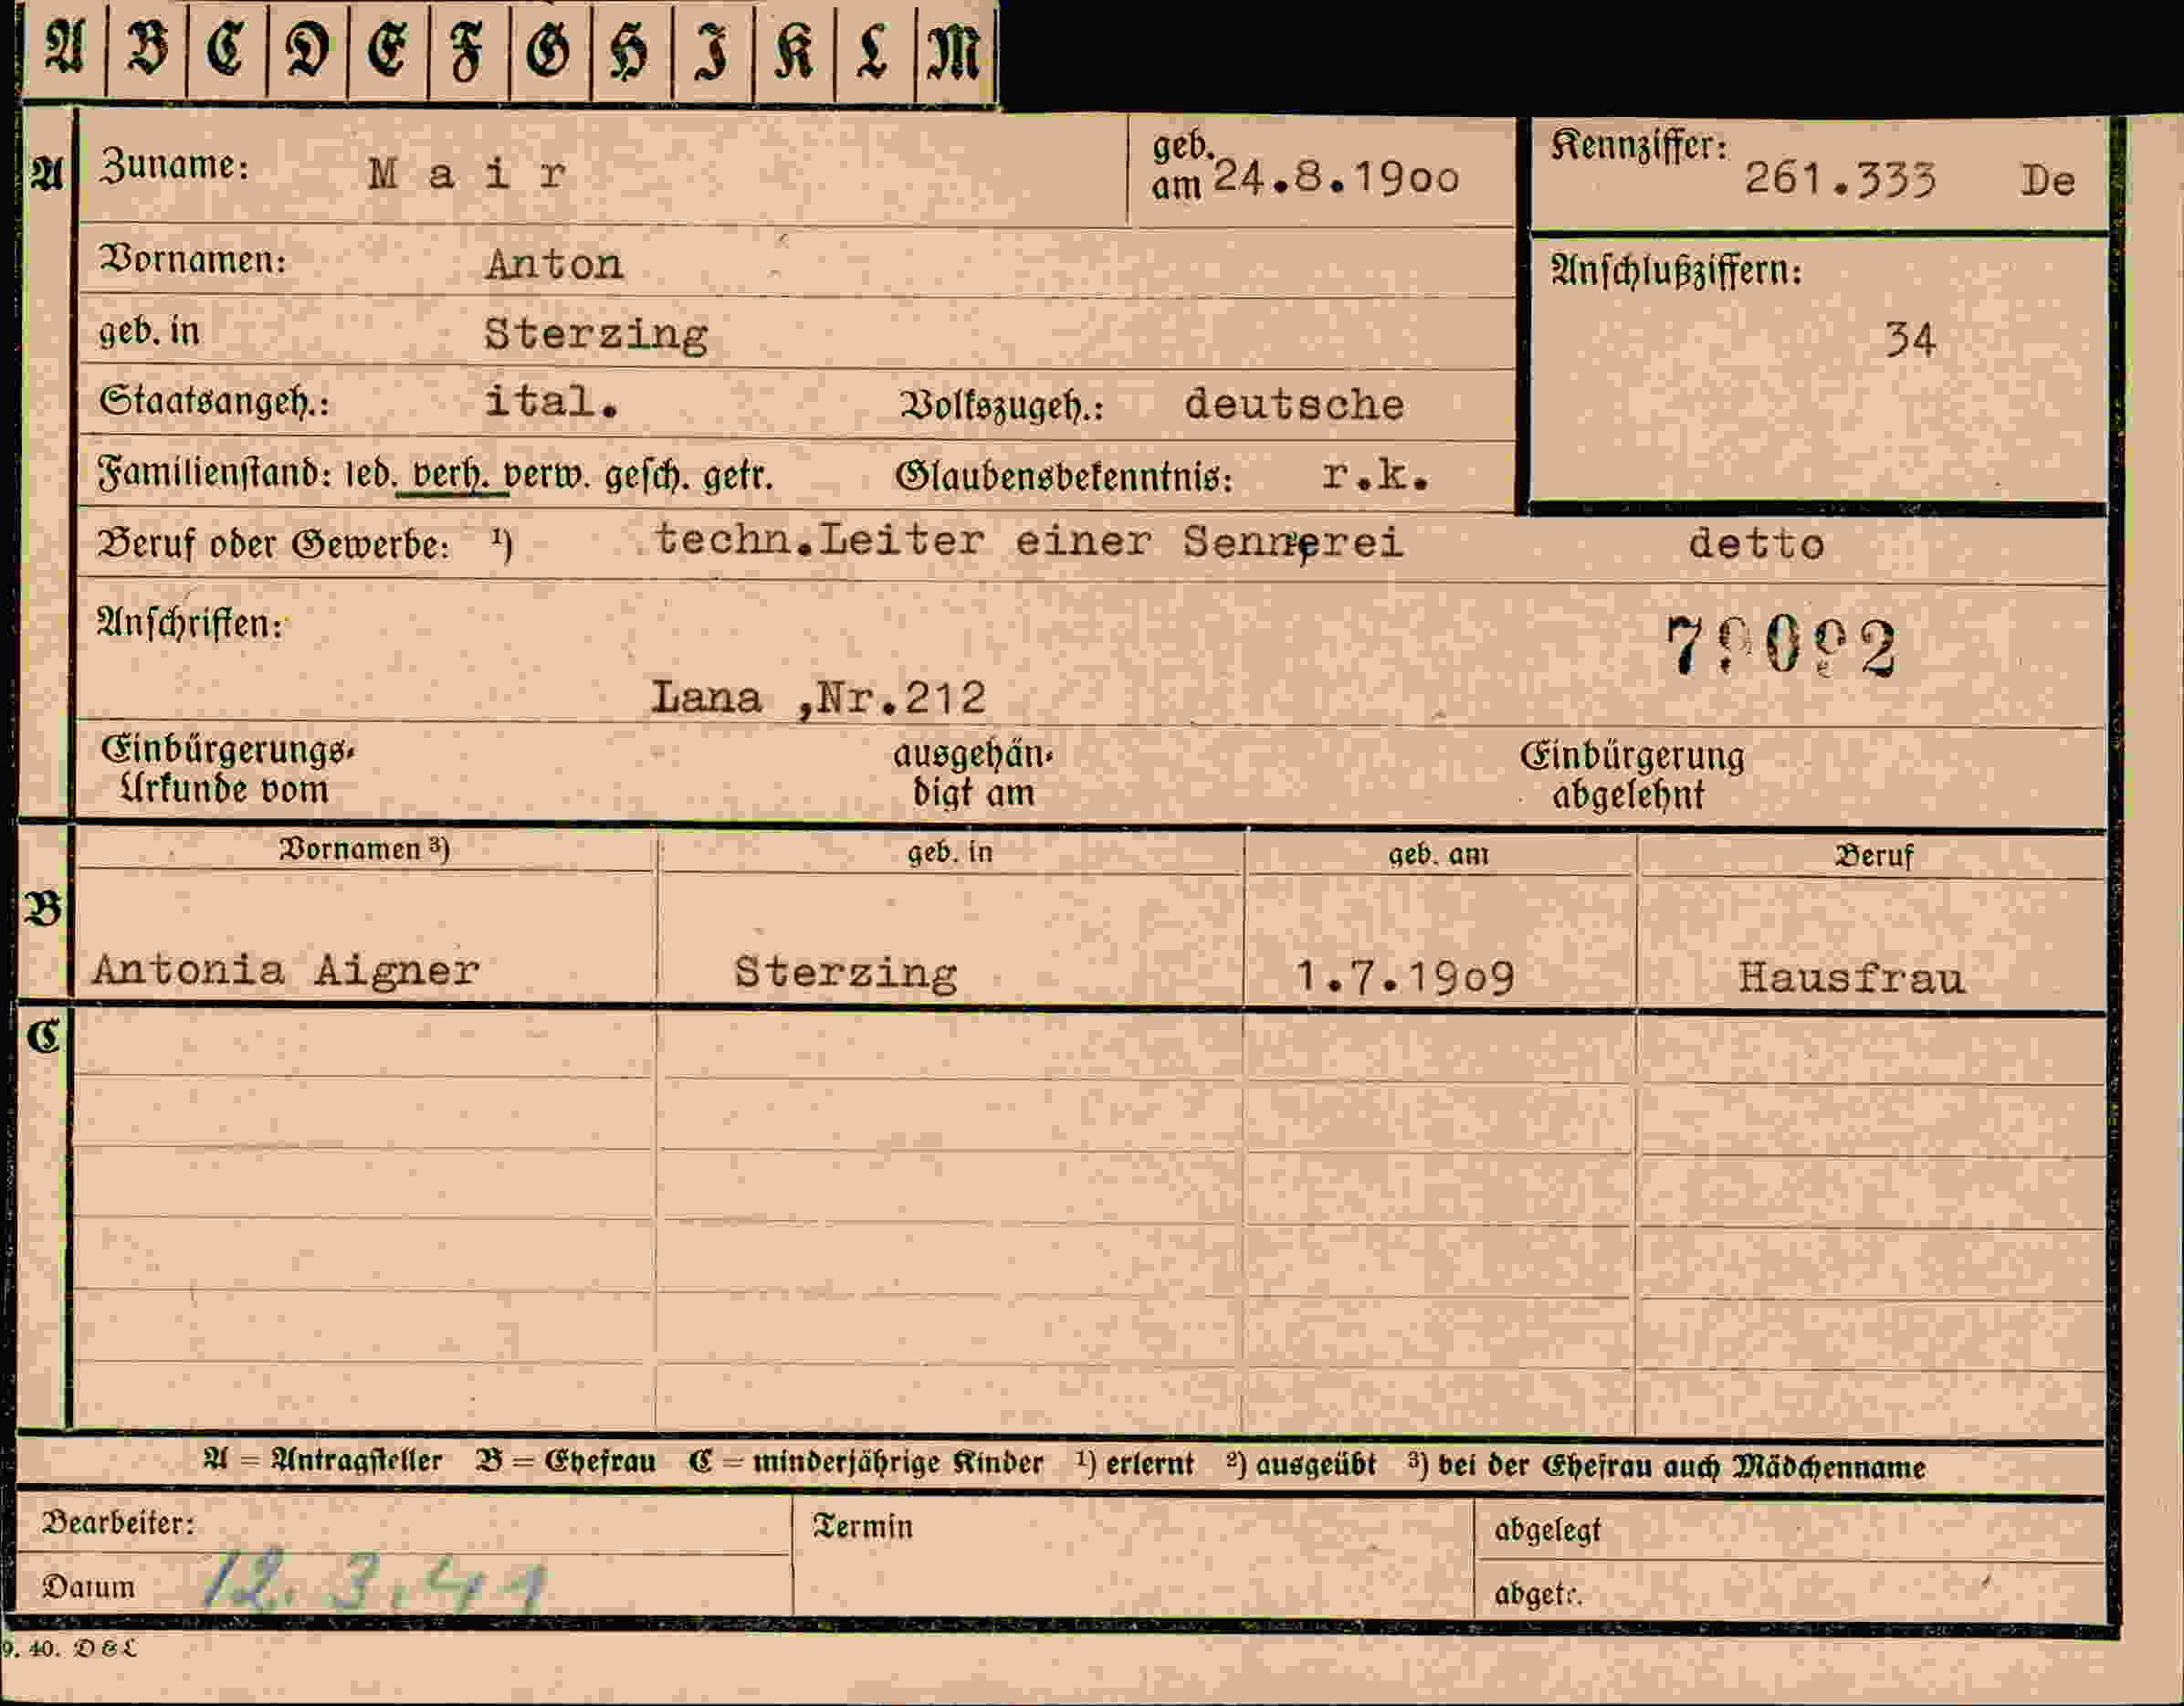 A B C D E F G H I K L M
A Zuname: Mair geb. am 24.8.19oo Kennziffer: 261.333 De
Vornamen: Anton Anschlußziffern:
geb. in Sterzing 34
Staatsangeh.: ital. Volkszugeh.: deutsche
Familienstand: led. verh. verw. gesch. getr. Glaubensbekenntnis: r.k.
Beruf oder Gewerbe: ¹) techn.Leiter einer Sennerei detto
Anschriften:
Lana ,Nr.212
Einbürgerungs- ausgehän- Einbürgerung
Urkunde vom digt am abgelehnt
Vornamen ³) geb. in geb. am Beruf
B
Antonia Aigner Sterzing 1.7.19o9 Hausfrau
C
A = Antragsteller B = Ehefrau C = minderjährige Kinder ¹) erlernt ²) ausgeübt ³) bei der Ehefrau auch Mädchenname
Bearbeiter: Termin abgelegt
Datum 12.3.41 abgetr.
9. 40. D & L